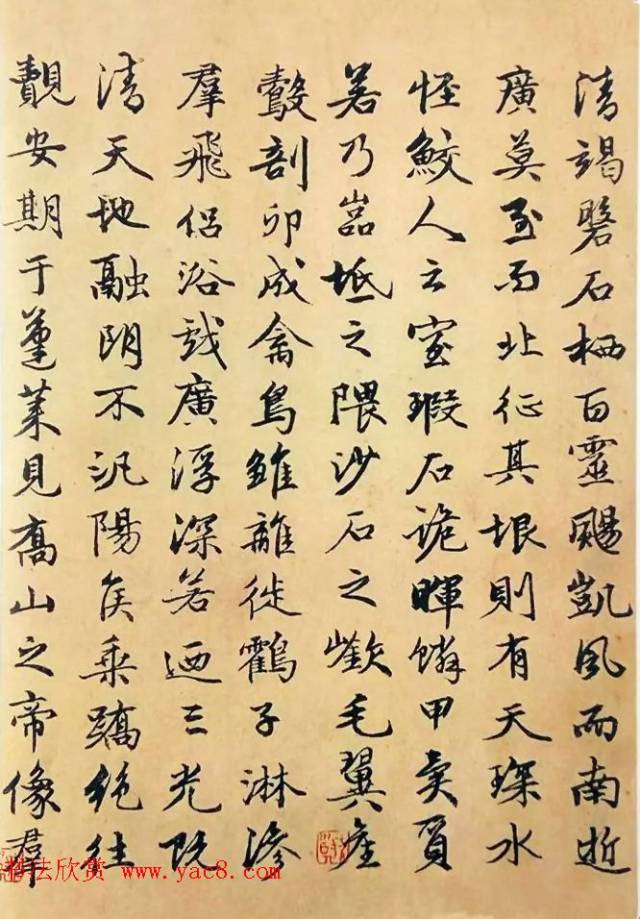 清竭磐石栖百靈颺凱風而南逝
廣莫至而北征其垠則有天琛水
怪鮫人之室瑕石詭暉鱗甲異質
若乃嵓坻之隈沙石之嶔毛翼產
鷇剖卵成禽鳧雛離徙鶴子淋滲
羣飛侶浴戲廣浮深若迺三光既
清天地融朗不汎陽侯乘蹻絕往
覿安期于蓬萊見喬山之帝像羣
书法欣赏 www.yac8.com